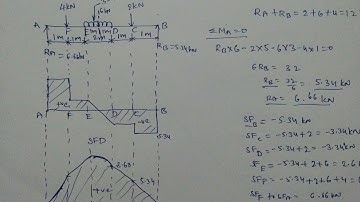 4kN 5kN
A F E D C B
1m 1m 2m 1m 1m
RA = 6.66kN RB = 5.34kN
+ve
A F E D C B
-ve
5.34
SFD
2.68
5.34
+ve
RA + RB = 2+6+4 = 12
≤MA = 0
RB×6 - 2×5 - 6×3 - 4×1 = 0
6RB = 32
RB = 32/6 = 5.34 kN
RA = 6.66 kN
SFB = -5.34 kN
SFC = -5.34+2 = -3.34 kN
SFD = -5.34+2 = -3.34 kN
SFE = -5.34+2+6 = 2.6
SFF = -5.34+2+6+4 =
6.66 kN